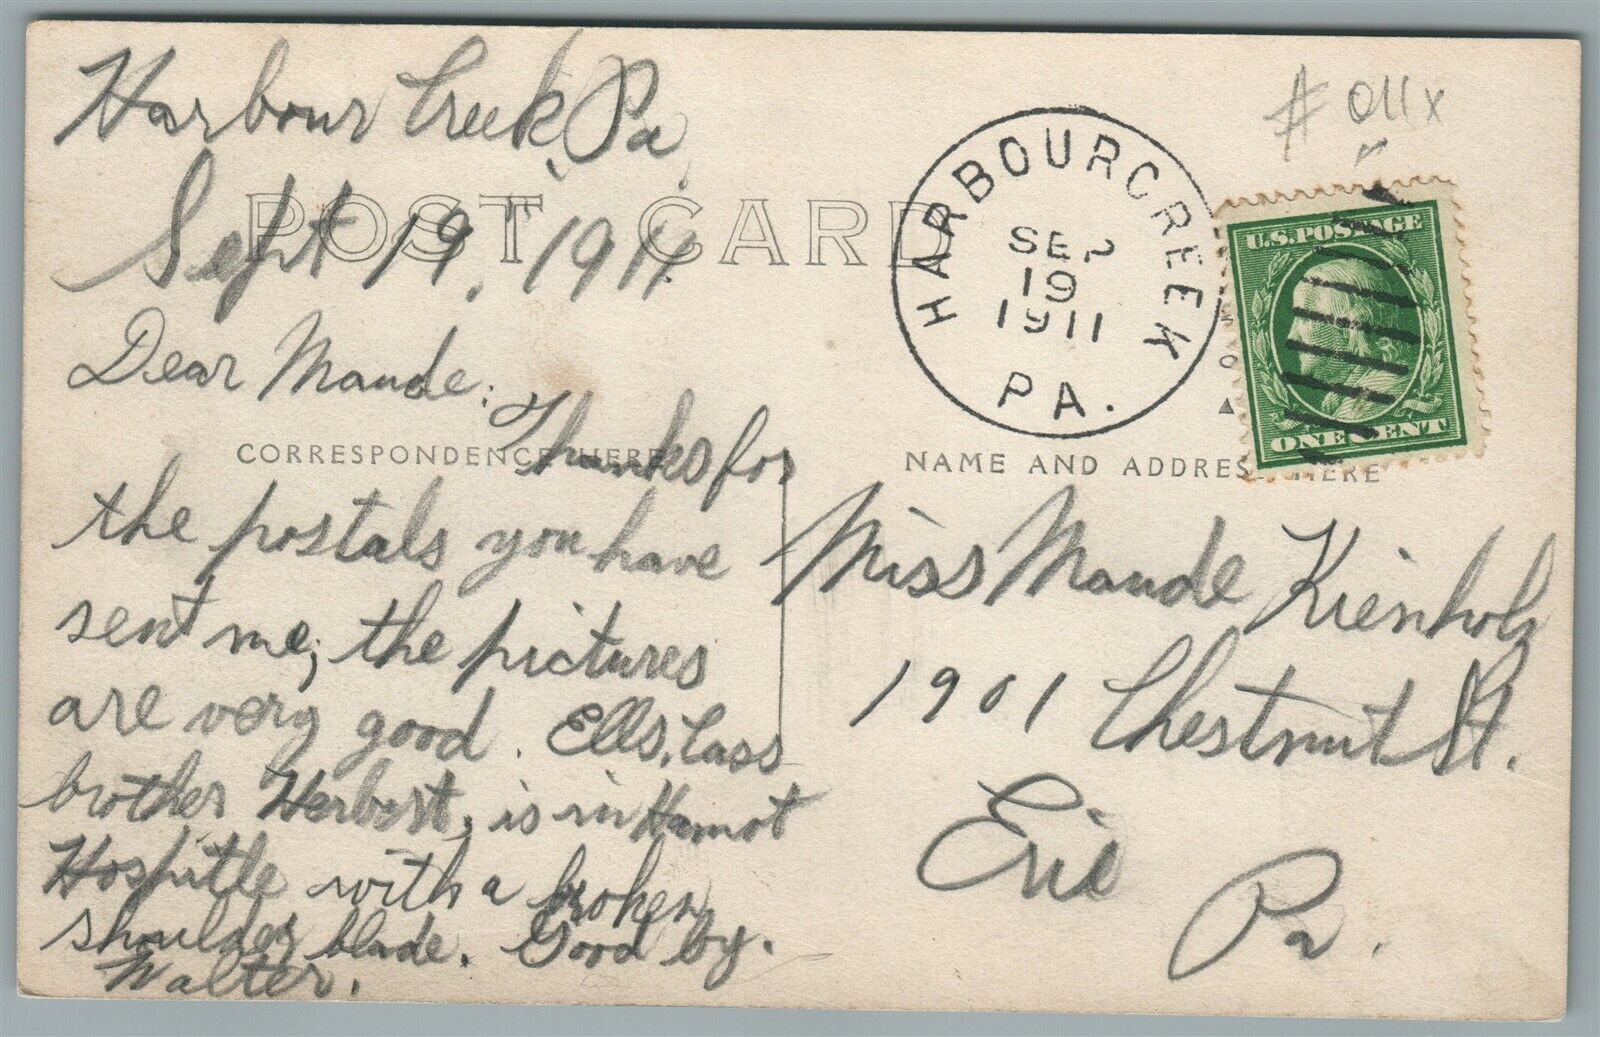 Harbour Creek, Pa,
Sept 19, 1911.
POST CARD
Dear Maude:
CORRESPONDENCE HERE
Thanks for
the postals you have
sent me; the pictures
are very good. Ells. Cass
brother Herbert, is in Hamot
Hospitle with a broken
shoulder blade. Good by.
Walter.
# 011x
HARBOURCREEK
SEP
19
1911
PA.
U.S. POSTAGE
ONE CENT
NAME AND ADDRESS HERE
Miss Maude Kienholz
1901 Chestnut St.
Erie
Pa.